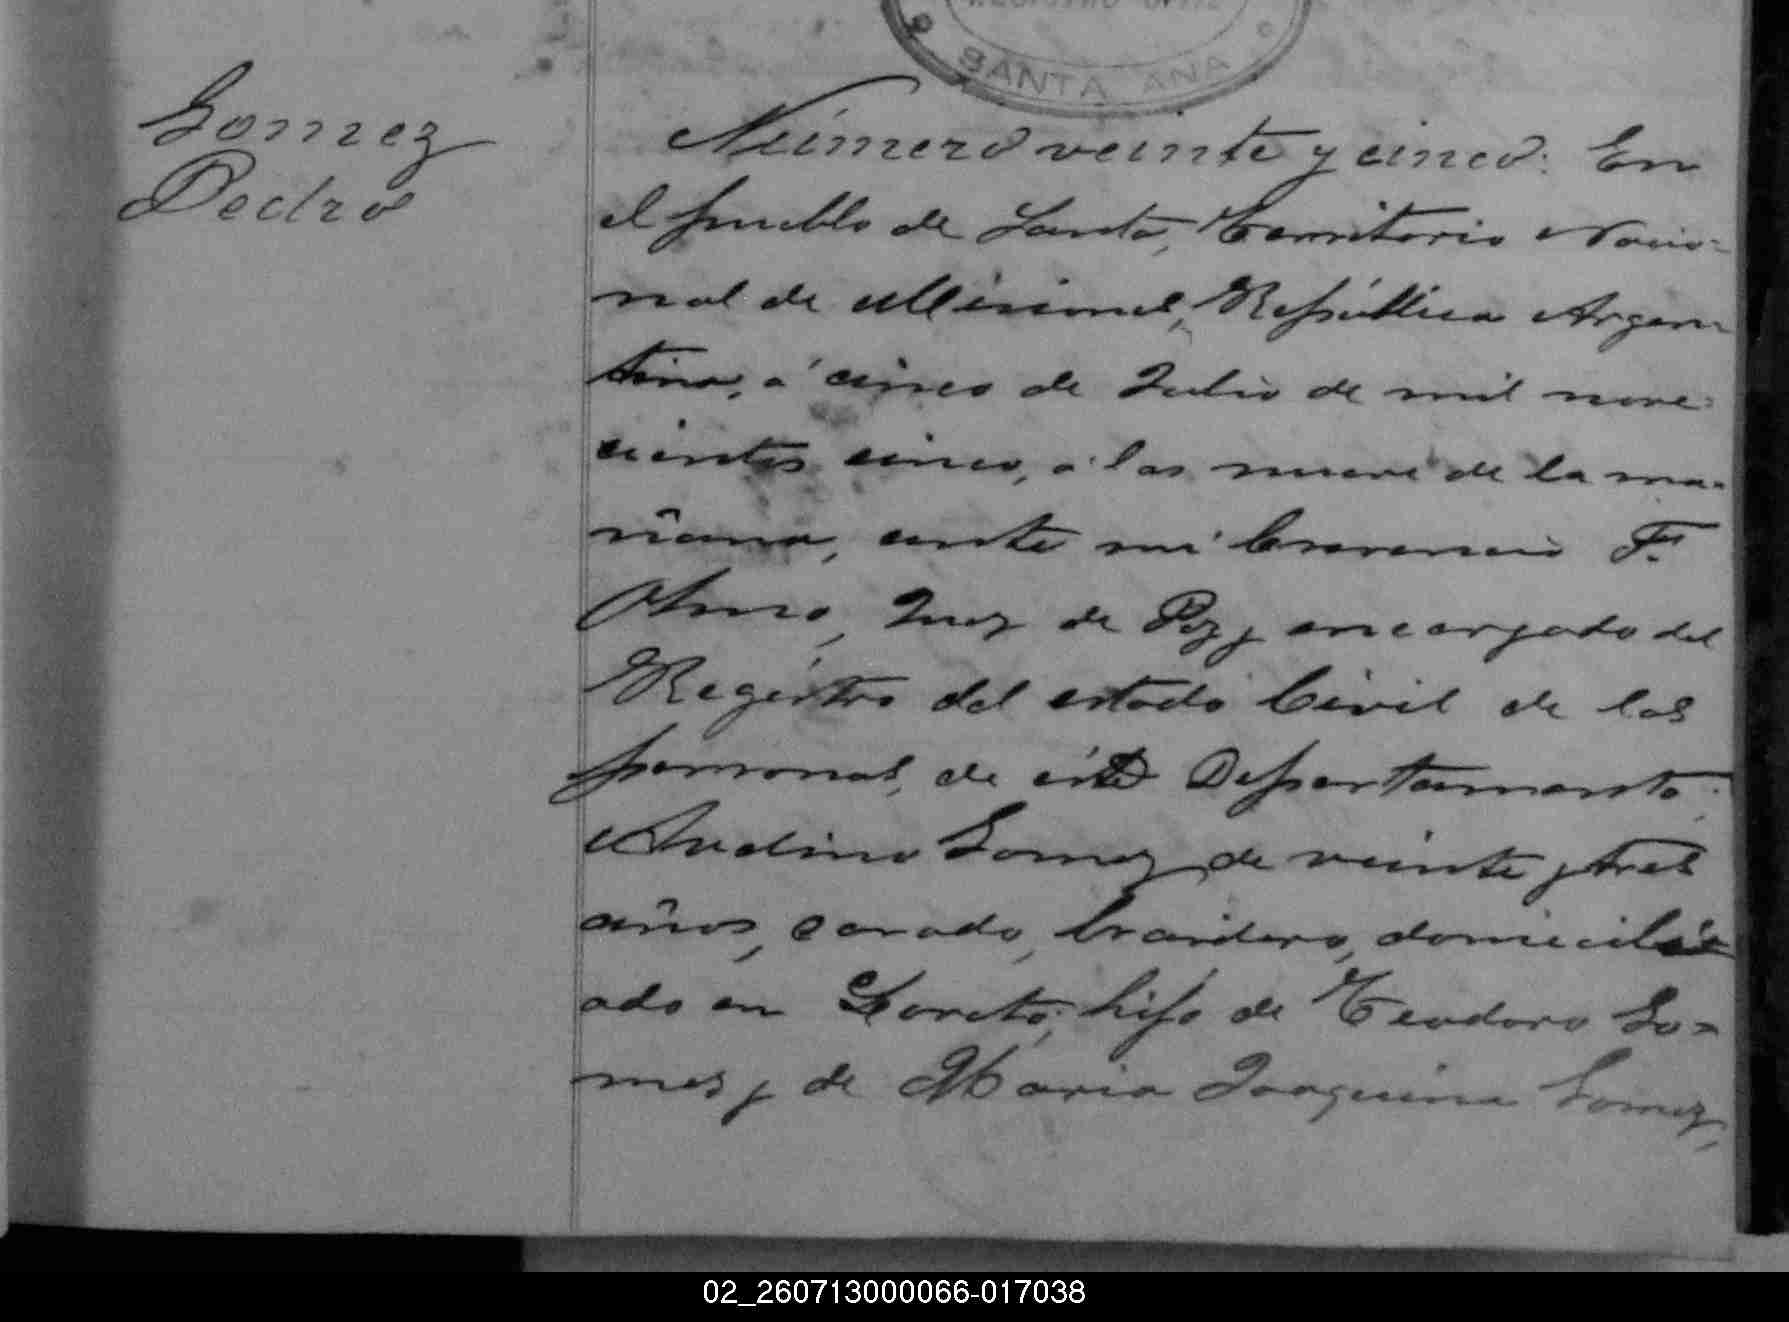 REGISTRO CIVIL
SANTA ANA
Gomez
Pedro
Número veinte y cinco: En
el pueblo de Santa, Territorio Nacio-
nal de Misiones, República Argen-
tina, á cinco de Julio de mil nove-
cientos cinco, á las nueve de la ma-
ñana, ante mi F.
Olmo, Juez de Paz y encargado del
Registro del estado Civil de las
personas, de éste Departamento
Gomez de veinte y tres
años, casado, domicili-
ado en Loreto, hijo de Teodoro Go-
mes y de Maria Joaquina Gomez,
02_260713000066-017038